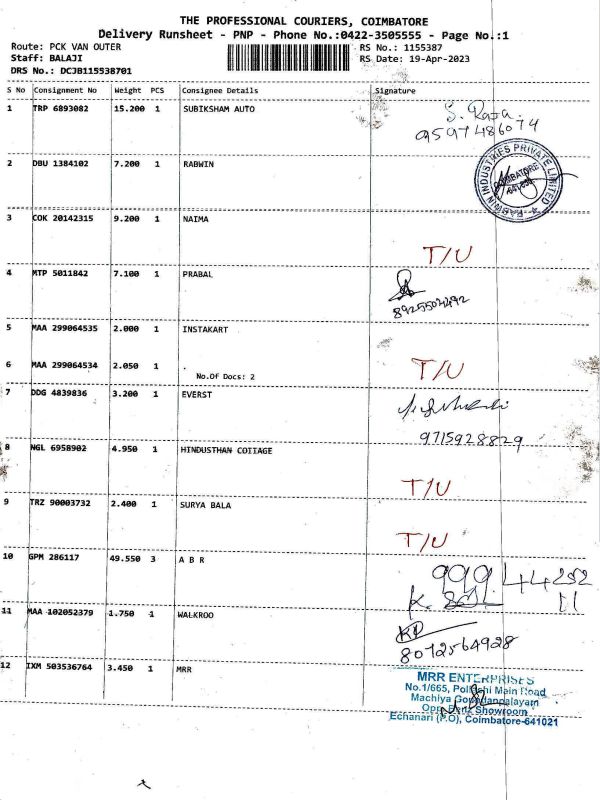 THE PROFESSIONAL COURIERS, COIMBATORE
Delivery Runsheet - PNP - Phone No.:0422-3505555 - Page No.:1
Route: PCK VAN OUTER
RS No.: 1155387
Staff: BALAJI
RS Date: 19-Apr-2023
DRS No.: DCJB115538701
S No Consignment No Weight PCS Consignee Details Signature
1 TRP 6893082 15.200 1 SUBIKSHAM AUTO S. Raja.
9597486074
2 DBU 1384102 7.200 1 RABWIN
RABWIN INDUSTRIES PRIVATE LIMITED
COIMBATORE
3 COK 20142315 9.200 1 NAIMA
T/U
4 MTP 5011842 7.100 1 PRABAL
5 MAA 299064535 2.000 1 INSTAKART
6 MAA 299064534 2.050 1 T/U
No.Of Docs: 2
7 DDG 4839836 3.200 1 EVERST
9715928829
8 NGL 6958902 4.950 1 HINDUSTHAN COIIAGE
T/U
9 TRZ 90003732 2.400 1 SURYA BALA
T/U
10 GPM 286117 49.550 3 A B R
11 MAA 102052379 1.750 1 WALKROO
8072564928
12 IXM 503536764 3.450 1 MRR
MRR ENTERPRISES
No.1/665, Pollachi Main Road
Machiya Goundanpalayam
Opp. Benz Showroom
Echanari (P.O), Coimbatore-641021